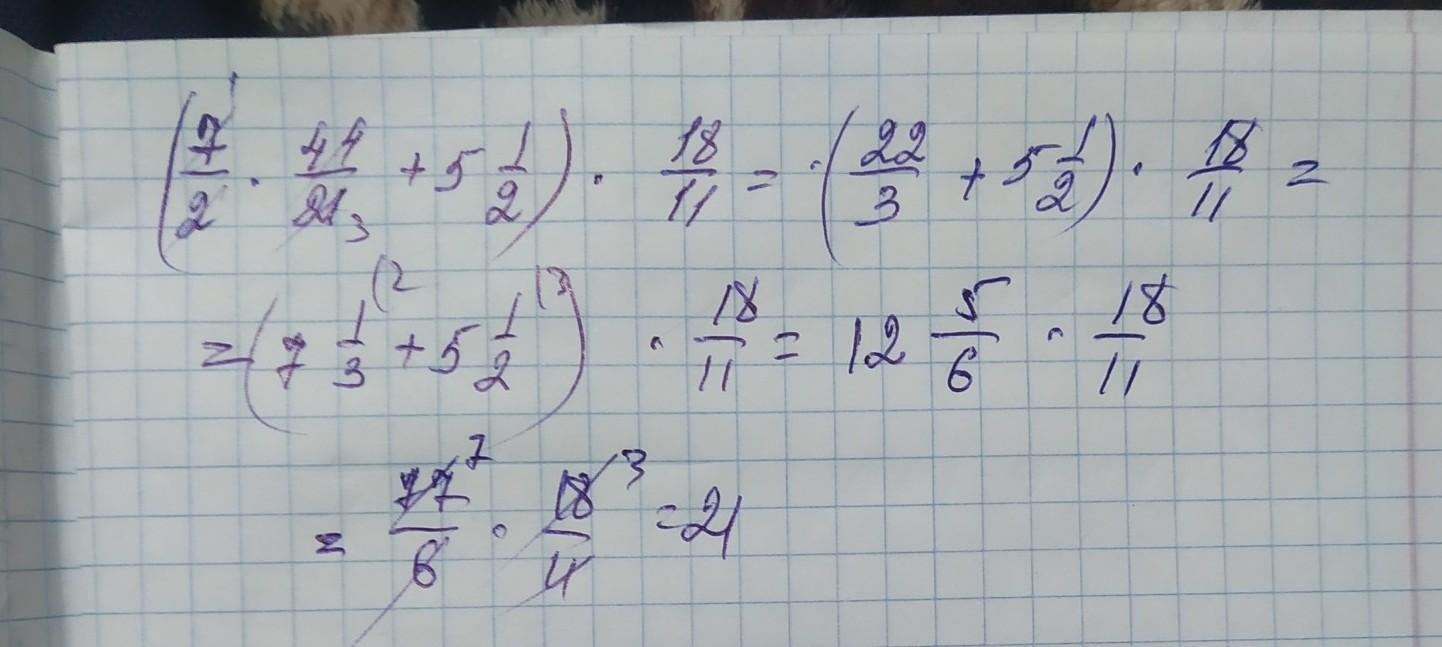 (7/2 · 44/21 + 5 1/2) · 18/11 = (22/3 + 5 1/2) · 18/11 =
= (7 1/3 + 5 1/2) · 18/11 = 12 5/6 · 18/11
= 77/6 · 18/11 = 21